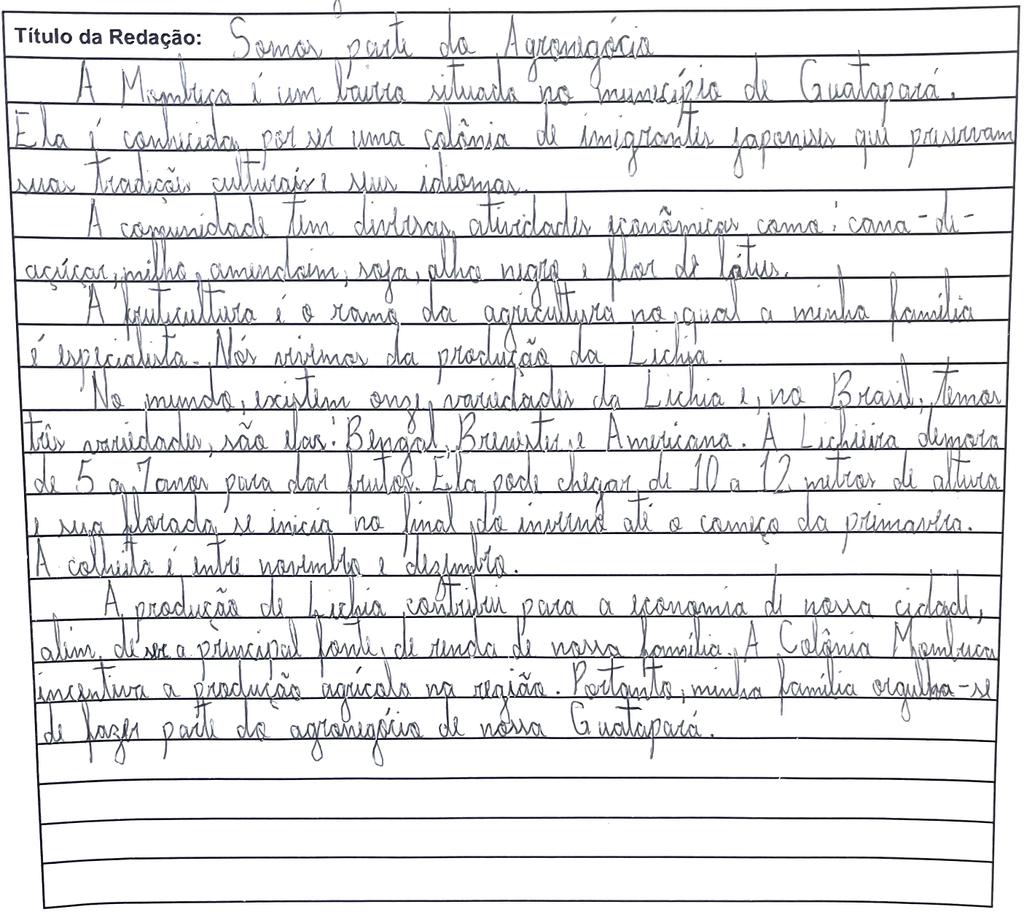 Título da Redação: Somos parte do Agronegócio
A Mombuca é um bairro situado no município de Guatapará.
Ela é conhecida por ser uma colônia de imigrantes japoneses que preservam
suas tradições culturais e seus idiomas.
A comunidade tem diversas atividades econômicas como: cana-de-
açúcar, milho, amendoim, soja, alho negro e flor de lótus.
A fruticultura é o ramo da agricultura no qual a minha família
é especialista. Nós vivemos da produção da Lichia.
No mundo, existem onze variedades da Lichia e, no Brasil, temos
três variedades, são elas: Bengal, Brewster e Americana. A Lichieira demora
de 5 a 7 anos para dar frutos. Ela pode chegar de 10 a 12 metros de altura
e sua florada se inicia no final do inverno até o começo da primavera.
A colheita é entre novembro e dezembro.
A produção de Lichia contribui para a economia de nossa cidade,
além de ser a principal fonte de renda de nossa família. A Colônia Mombuca
incentiva a produção agrícola na região. Portanto, minha família orgulha-se
de fazer parte do agronegócio de nossa Guatapará.